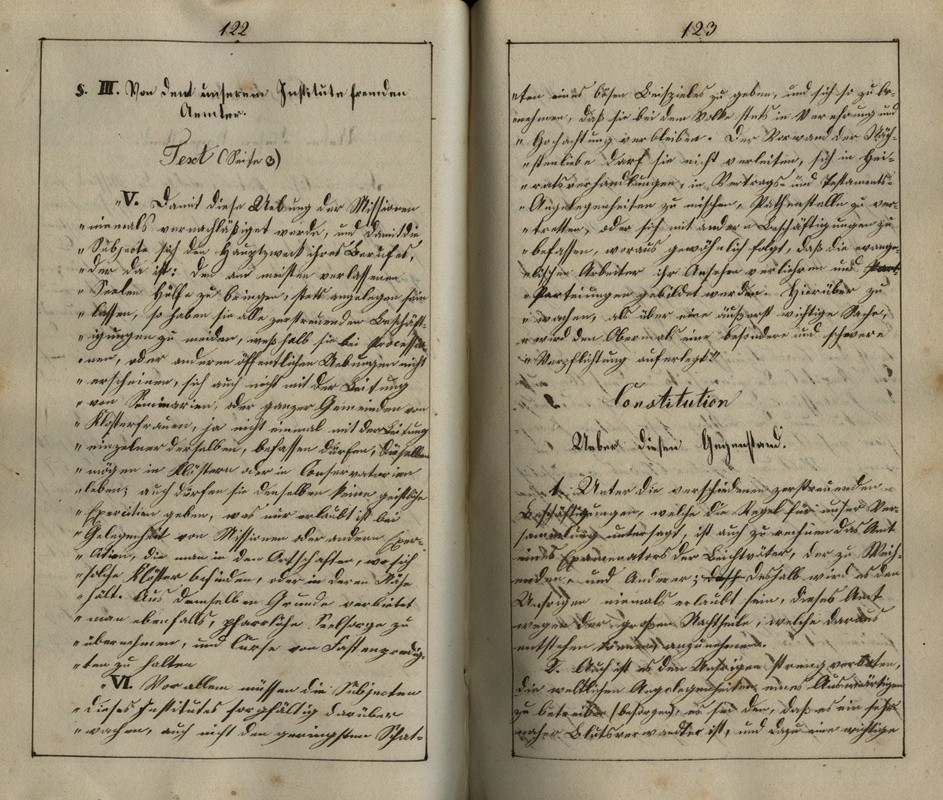 122
§. III. Von den unserem Institute fremden
Aemter.
Text (Seite 3)
„V. Damit diese Uebung der Missionen
„niemals vernachläßiget werde, und damit die
„Subjecte sich den Hauptzweck ihres Berufes,
„der da ist: den am meisten verlassenen
„Seelen Hülfe zu bringen, stets angelegen sein
„lassen, so haben sie alle zerstreuenden Beschäft-
„igungen zu meiden, weß halb sie bei Processio-
„nen, oder anderen öffentlichen Uebungen nicht
„erscheinen, sich auch nicht mit der Leitung
„von Seminarien, oder ganzer Gemeinden von
„Klosterfrauen, ja nicht einmal mit der Leitung
„einzelner derselben, befassen dürfen, dieselben
„mögen in Klöstern oder in Conservatorien
„leben; auch dürfen sie denselben keine geistliche
„Exercitien geben, was nur erlaubt ist bei
„Gelegenheit von Missionen oder andern Exer-
„citien, die man in den Ortschaften, wo sich
„solche Klöster befinden, oder in deren Nähe
„hält. Aus demselben Grunde verbietet
„man ebenfalls, pfarrliche Seelsorge zu
„übernehmen, und Curse von Fastenpredig-
„ten zu halten
„VI. Vor allem müssen die Subjecten
„dieses Institutes sorgfältig darüber
„wachen, auch nicht den geringsten Schat-
123
„ten eines bösen Beispieles zu geben, und sich so zu be-
„nehmen, daß sie bei dem Volke stets in Verehrung und
„Hochachtung verbleiben. Der Vorwand der Näch-
„stenliebe darf sie nicht verleiten, sich in Hei-
„ratsverhandlungen, in Vertrags- und Testaments-
„Angelegenheiten zu mischen, Pathenstelle zu ver-
„tretten, oder sich mit andern Beschäftigungen zu
„befassen, woraus gewöhnlich folgt, daß die evange-
„lischen Arbeiter ihr Ansehen verliehren und
„Parteiungen gebildet werden. Hierüber zu
„wachen, als über eine äußerst wichtige Sache,
„wird den Obern als eine besondere und schwere
„Verpflichtung auferlegt.“
Constitution
Ueber diesen Gegenstand.
1. Unter die verschiedenen zerstreuenden
Beschäftigungen, welche die Regel für unser Ver-
sammlung untersagt, ist auch zu rechnen das Amt
eines Examinators der Beichtväter, der zu Weih-
enden, und Anderer; deshalb wird es den
Unsrigen niemals erlaubt sein, dieses Amt
wegen der großen Nachtheile, welche daraus
entstehen anzunehmen.
2. Auch ist es den Unsrigen streng verboten,
die weltlichen Angelegenheiten eines Auswärtigen
zu betreiben (besorgen), es sei denn, daß es ein sehr
naher Blutsverwandter ist, und dazu eine wichtige